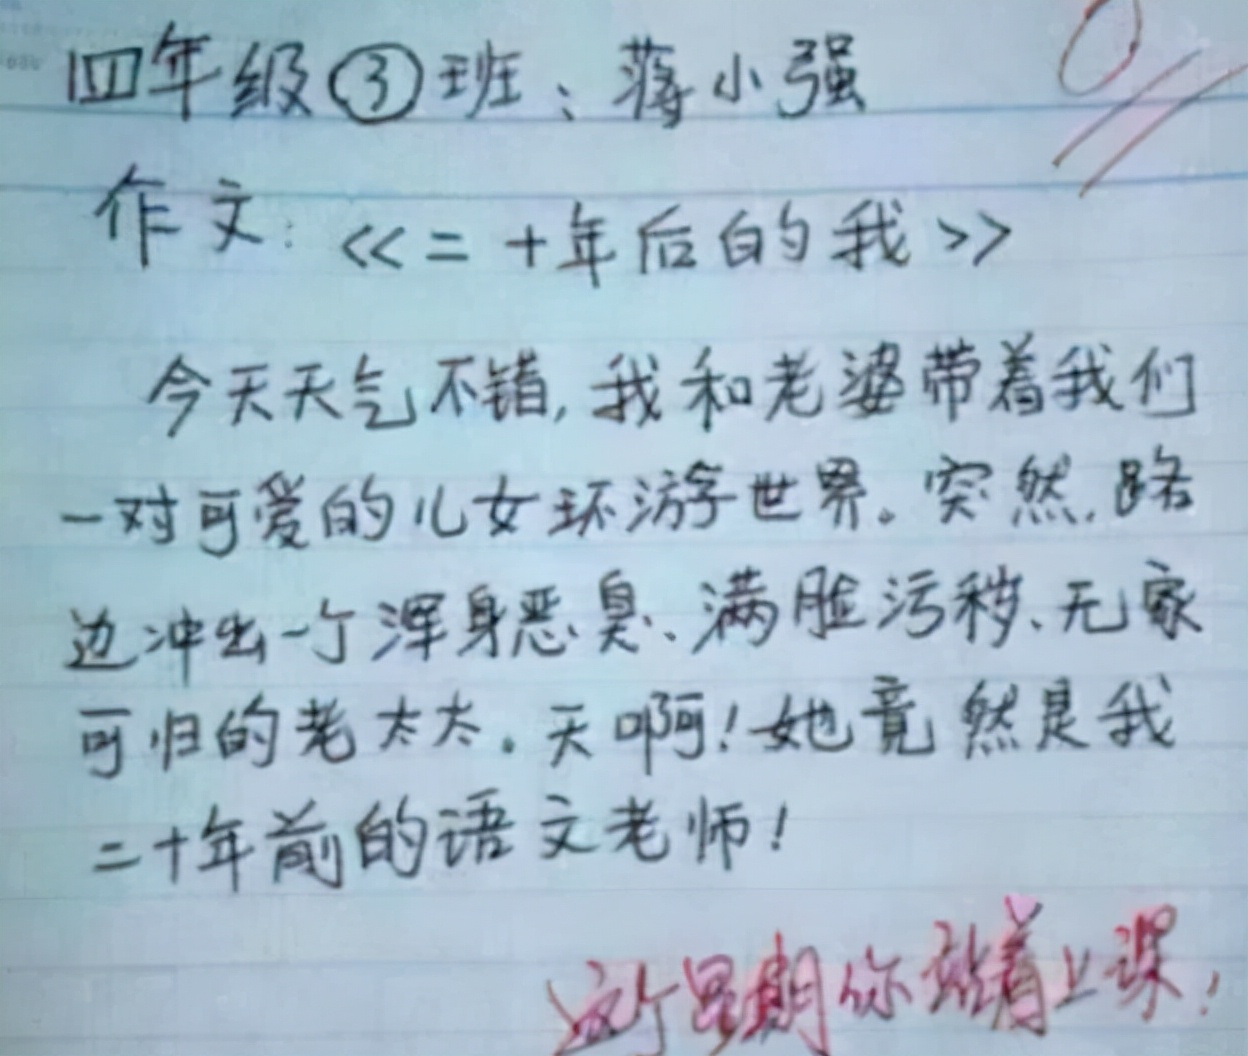 四年级③班：蒋小强
0
作文：《二十年后的我》
今天天气不错，我和老婆带着我们
一对可爱的儿女环游世界。突然，路
边冲出一个浑身恶臭、满脸污秽、无家
可归的老太太。天啊！她竟然是我
二十年前的语文老师！
这个星期你站着上课！